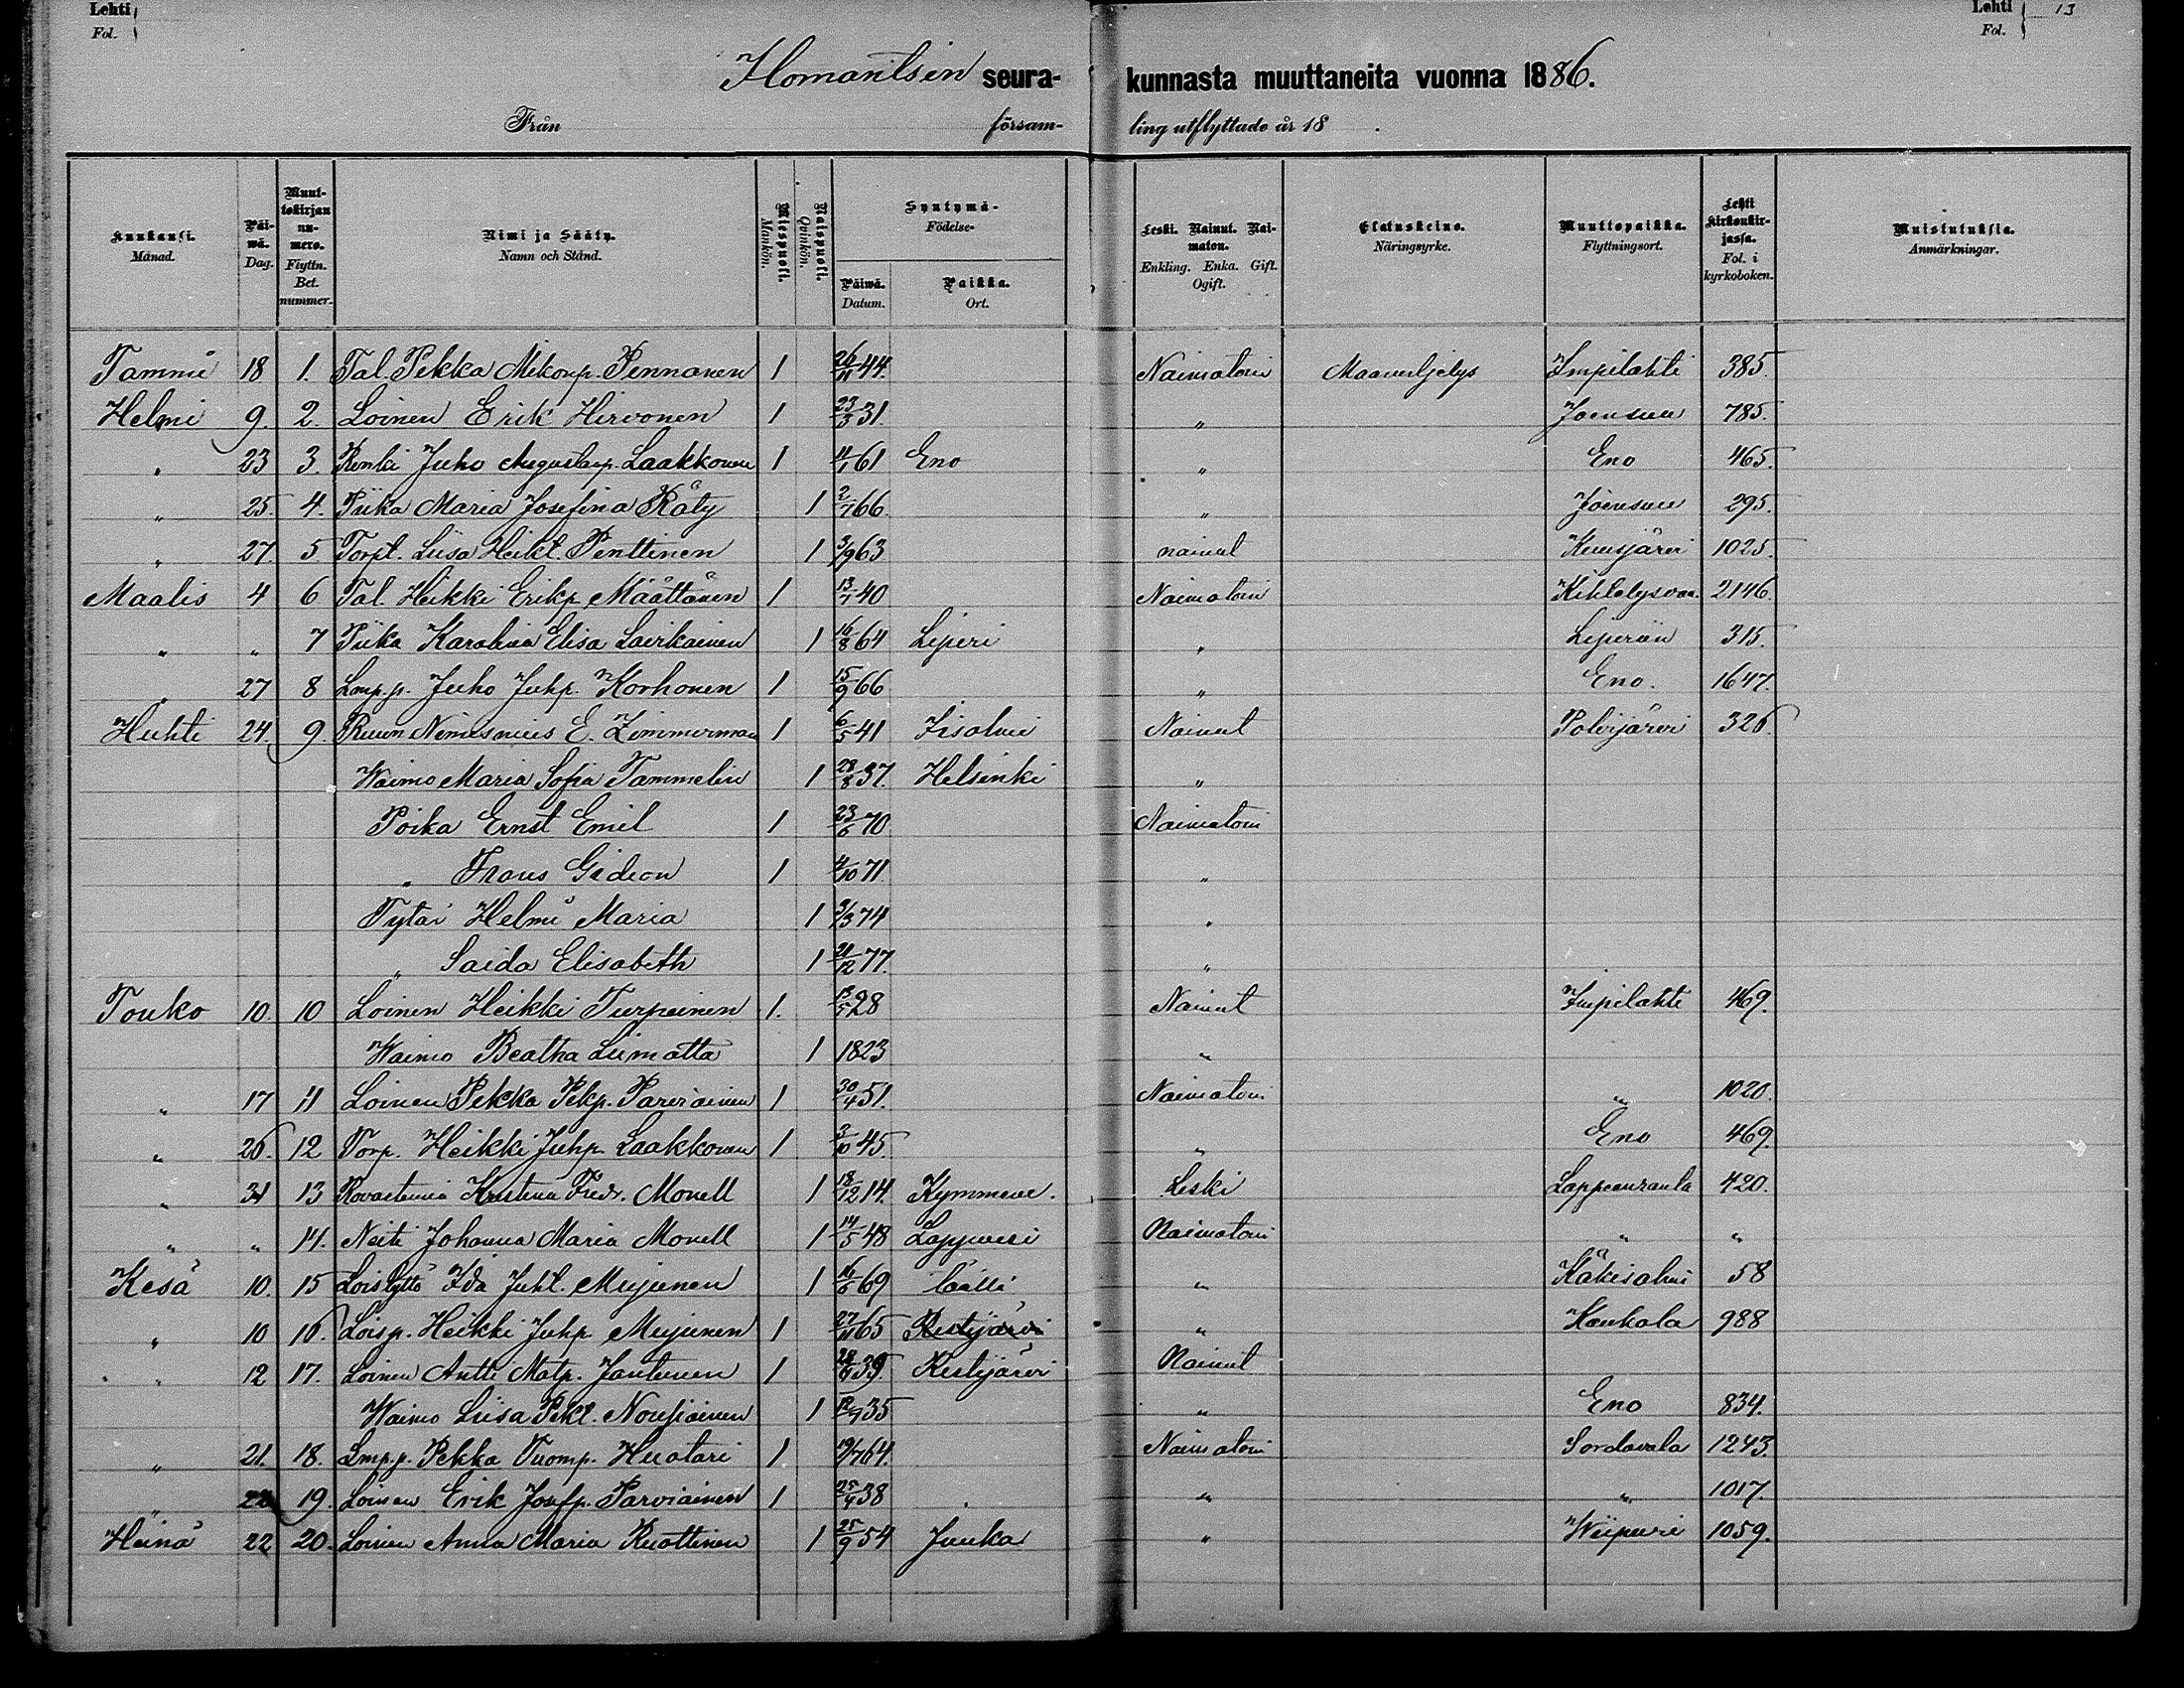 Lehti Fol.
Lehti Fol. 13
Ilomantsin seurakunnasta muuttaneita vuonna 1886.
Från församling utflyttade år 18 .
Kuukausi. Månad. | Päiwä. Dag. | Muuttokirjan numero. Flyttn. Bet. nummer. | Nimi ja Sääty. Namn och Stånd. | Miespuoli. Mankön. | Naispuoli. Qvinkön. | Syntymä- Födelse- Päiwä. Datum. | Paikka. Ort. | Leski. Nainut. Naimaton. Enkling. Enka. Gift. Ogift. | Elatuskeino. Näringsyrke. | Muuttopaikka. Flyttningsort. | Lehti kirkonkirjassa. Fol. i kyrkoboken. | Muistutuksia. Anmärkningar.
Tammi 18 1. Tal. Pekka Mikonp. Pennanen 1 26/11 44. Naimaton Maanviljelys Impilahti 385.
Helmi 9. 2. Loinen Erik Hirvonen 1 23/3 31. " Joensuu 785.
" 23 3. Renki Juho Augustinp. Laakkonen 1 11/1 61 Eno " Eno 465.
" 25. 4. Piika Maria Josefina Räty 1 2/7 66. " Joensuu 295.
" 27. 5 Torpt. Liisa Heikt. Penttinen 1 3/9 63 nainut Kuusjärvi 1025.
Maalis 4 6 Tal. Heikki Erikp. Määttänen 1 13/7 40 Naimaton Kihtelysvaa. 2146.
" " 7 Piika Karolina Elisa Lavikainen 1 16/8 64 Liperi " Liperiin 315.
" 27 8 Lmp.p. Juho Juhp. Korhonen 1 15/9 66 " Eno. 1647.
Huhti 24. 9. Ruun Nimismies E. Zimmerman 1 6/5 41 Iisalmi Nainut Polvijärvi 326.
Waimo Maria Sofia Tammelin 1 28/8 37. Helsinki "
Poika Ernst Emil 1 23/6 70 Naimaton
" Frans Gideon 1 4/10 71. "
Tytär Helmi Maria 1 3/3 74 "
" Saida Elisabeth 1 21/12 77. "
Touko 10. 10 Loinen Heikki Turpeinen 1. 13/5 28 Nainut Impilahti 469.
Waimo Beatha Liimatta 1 1823 "
" 17 11 Loinen Pekka Pekp. Parviainen 1 30/4 51. Naimaton " 1020.
" 26. 12 Torp. Heikki Juhp. Laakkonen 1 3/10 45. " Eno 469.
" 31 13 Rovastinna Kristina Fredr. Monell 1 18/12 14. Kymmene. Leski Lappeenranta 420.
" " 14. Neiti Johanna Maria Monell 1 14/5 48 Lappvesi Naimaton " "
Kesä 10. 15 Loistyttö Ida Juht. Mujunen 1 16/6 69 " Käkisalmi 58
" 10 16. Loisp. Heikki Juhp. Mujunen 1 27/11 65 Ristijärvi " Kaukola 988
" 12 17. Loinen Antti Matp. Jantunen 1 28/11 39. Ristijärvi Nainut
Waimo Liisa Pekt. Nousiainen 1 12/7 35 " Eno 834.
" 21. 18. Lmp.p. Pekka Tuomp. Huotari 1 19/7 64. Naimaton Sordavala 1243.
" 22 19. Loinen Erik Josefp. Parviainen 1 25/4 38 " " 1017.
Heinä 22 20. Loinen Anna Maria Ruottinen 1 25/9 54 Juuka " Wiipuri 1059.